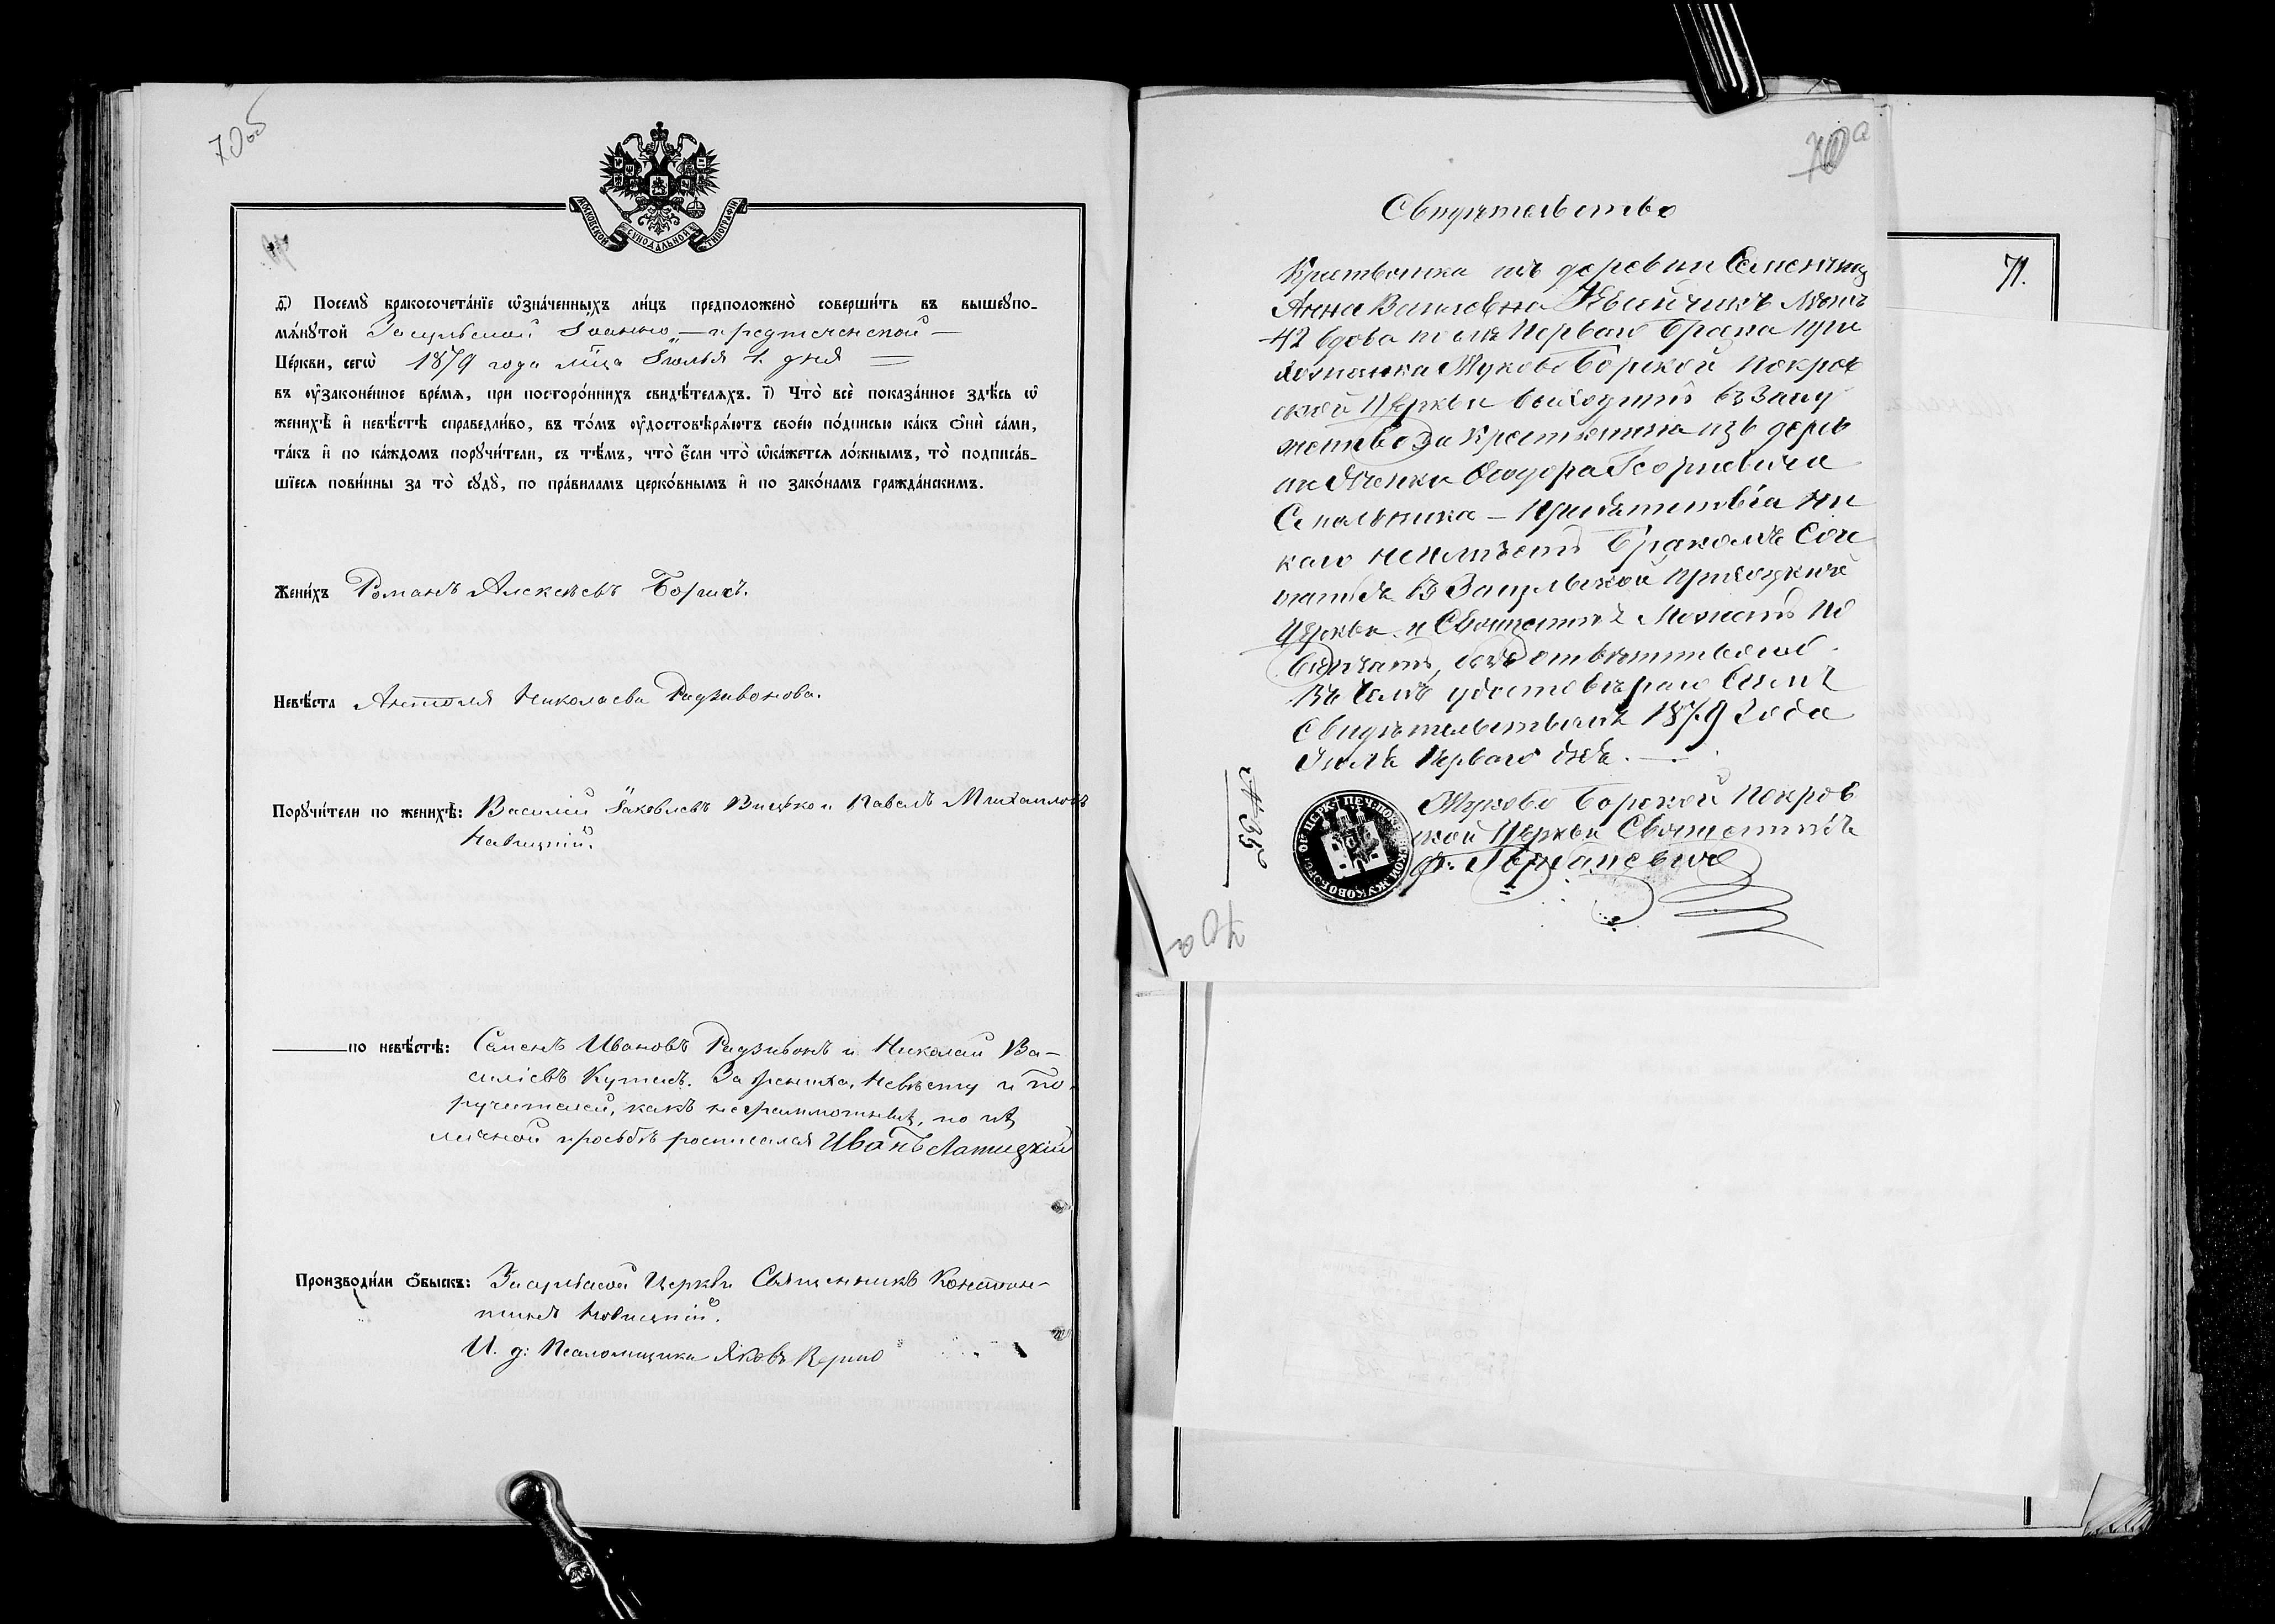 70об
МОСКОВСКОЙ СѴНОДАЛЬНОЙ ТИПОГРАФІИ
Посемꙋ̀ бракосочета́нїе ѡ҆зна́ченныхъ ли́цъ предположено̀ соверши́ть въ вышеꙋпо-
мѧ́нꙋтой Засульской Іоанно-предтеченской
Це́ркви, сегѡ̀ 1879 года мца Іюлья 1. дня
въ ѹ҆зако́ненное вре́мѧ, при посторо́ннихъ свидѣ́телѧхъ. і҃) Что̀ всѐ пока́занное здѣ́сь ѡ҆
женихѣ̀ и҆ невѣ́стѣ справедли́во, въ то́мъ ѹ҆достовѣрѧ́ютъ свое́ю по́дписью ка́къ ѻ҆нѝ са́ми,
та́къ и҆ по ка́ждомъ порꙋчи́тели, съ тѣ́мъ, что̀ є҆́сли что̀ ѡ҆ка́жетсѧ ло́жнымъ, то̀ подписа́в-
шїесѧ пови́нны за то̀ сꙋдꙋ̀, по пра́виламъ церко́внымъ и҆ по зако́намъ гражда́нскимъ.
Жени́хъ Романъ Алексѣевъ Борисъ.
Невѣ́ста Антоля Николаева Радзивонова.
Порꙋчи́тели по женихѣ̀: Василій Іаковлевъ Вицько и Павелъ Михаиловъ
Навицкій.
по невѣ́стѣ: Семенъ Ивановъ Радзивонъ и Николай Ва-
силіевъ Кутасъ. За жениха, невѣсту и по-
ручителей, какъ неграмотныхъ, по ихъ
личной просьбѣ росписался Иванъ Латицкій
Производи́ли ѻ҆́быскъ: Засульской Церкви Священникъ Констан-
тинъ Новицкій.
И. д: Псаломщика Яковъ
70а
Свидѣтельство
Крестьянка изъ деревни
Анна Василевна Квайчикъ лѣтъ
42 вдова послѣ Перваго брака при
хожанка Жуково Борской Покров
ской Церкви выходитъ въ Заму
жетво За Крестьянина изъ дерев
ни Ячонки Ѳеодора Георгіевича
Сенъ́ника – Припятствія ни
каго неимѣетъ бракомъ Соч
татся В Засульской приходкой
Церкви и Священникъ Можетъ по
вѣнчатъ, безъ отвѣтствено
Въ чемъ удостовѣраю Симъ
Свидѣтельствомъ 1879 Года
Іюля Перваго дня.
Жуково Борской Покров
ской Церкви Священникъ
№ 35
70а
71.